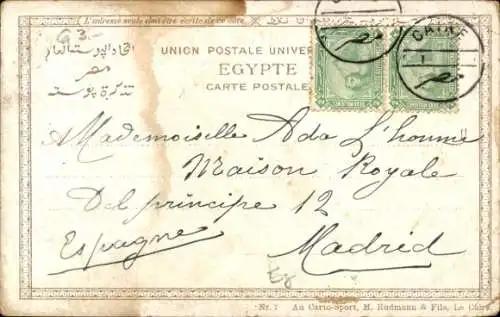 L'adresse seule doit être écrite de ce côté.
G 3.-
اتحاد البوستة العام
مصر
تذكرة بوستة
UNION POSTALE UNIVER
EGYPTE
CARTE POSTALE
CAIRE
Mademoiselle Ada L'homme
Maison Royale
Del principe 12
Espagne
Madrid
Nr. 7 Au Carto-Sport, M. Rudmann & Fils, Le Caire